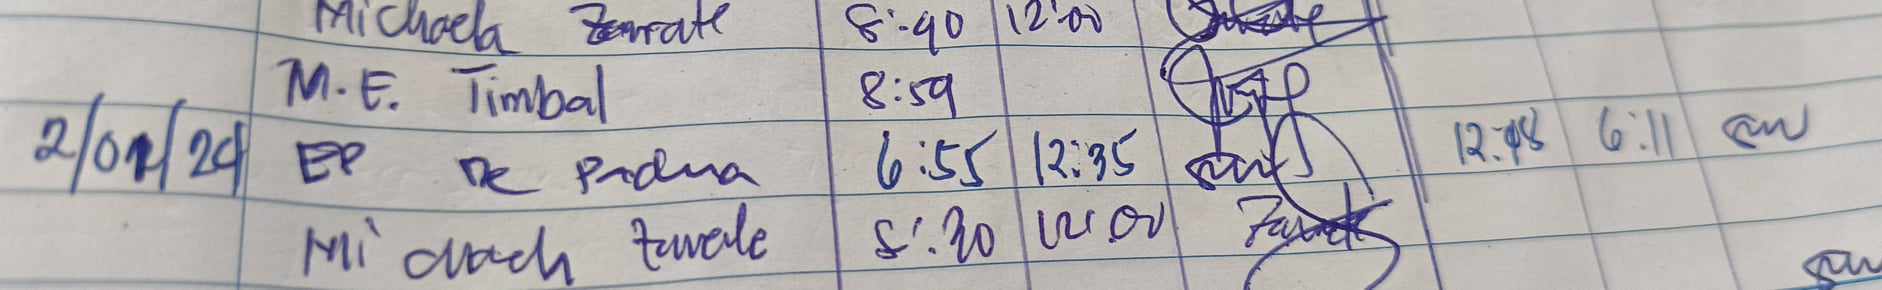 Michaela Zarate 8:40 12:00
M.E. Timbal 8:59
2/01/24 EP De Padua 6:55 12:35 12:48 6:11
Michaela Zarate 8:30 12:00 Zarate